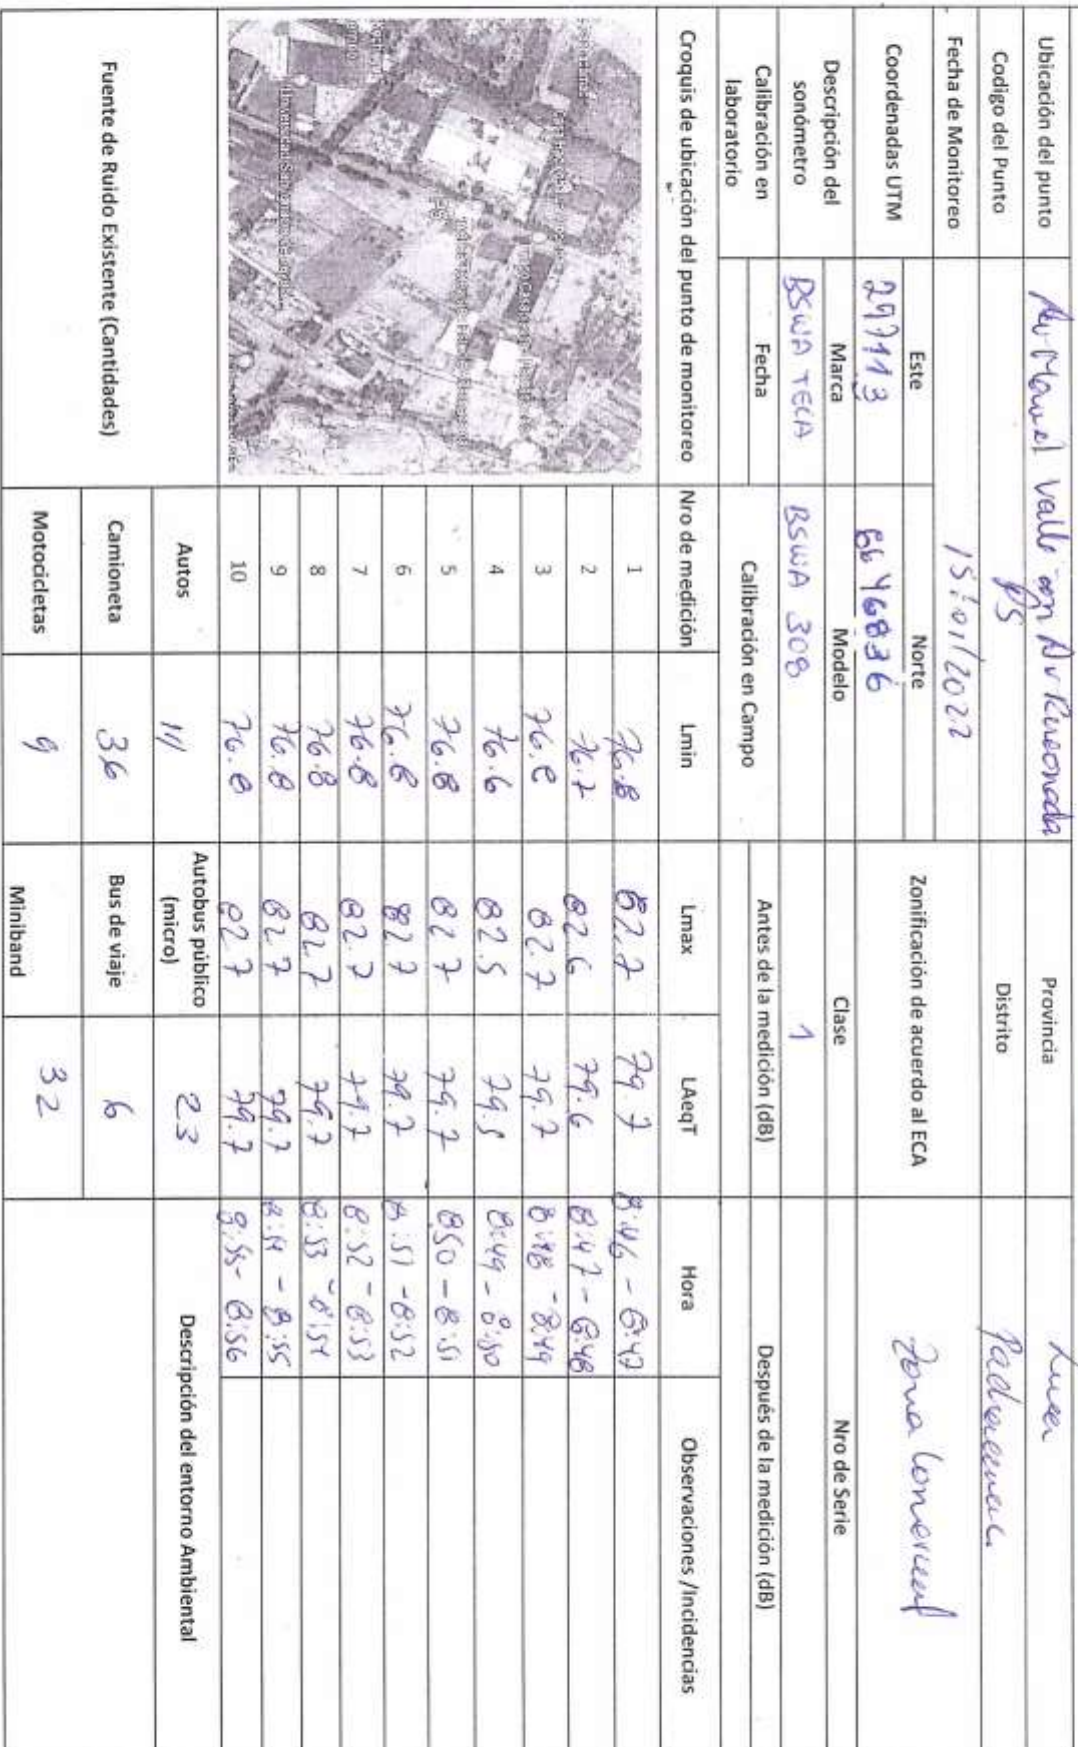 Ubicación del punto Av Manuel Valle con Av Rinconada Provincia Lima
Codigo del Punto P5 Distrito Pachacamac
Fecha de Monitoreo 15/01/2022
Coordenadas UTM Este Norte Zonificación de acuerdo al ECA Zona Comercial
297113 8646836
Descripción del sonómetro Marca Modelo Clase Nro de Serie
BSWA TECH BSWA 308 1
Calibración en laboratorio Fecha Calibración en Campo Antes de la medición (dB) Después de la medición (dB)
Croquis de ubicación del punto de monitoreo Nro de medición Lmin Lmax LAeqT Hora Observaciones /Incidencias
1 76.8 82.7 79.7 8:46 - 8:47
2 76.7 82.6 79.6 8:47 - 8:48
3 76.8 82.7 79.7 8:48 - 8:49
4 76.6 82.5 79.5 8:49 - 8:50
5 76.8 82 7 79.7 850 - 8:51
6 76.8 82 7 79.7 8:51 - 8:52
7 76.8 82 7 79.7 8:52 - 8:53
8 76.8 82.7 79.7 8:53 - 8:54
9 76.8 82.7 79.7 8:54 - 8:55
10 76.8 82 7 79.7 8:55 - 8:56
Fuente de Ruido Existente (Cantidades) Autos 111 Autobus público (micro) 23 Descripción del entorno Ambiental
Camioneta 36 Bus de viaje 6
Motocicletas 9 Miniband 32